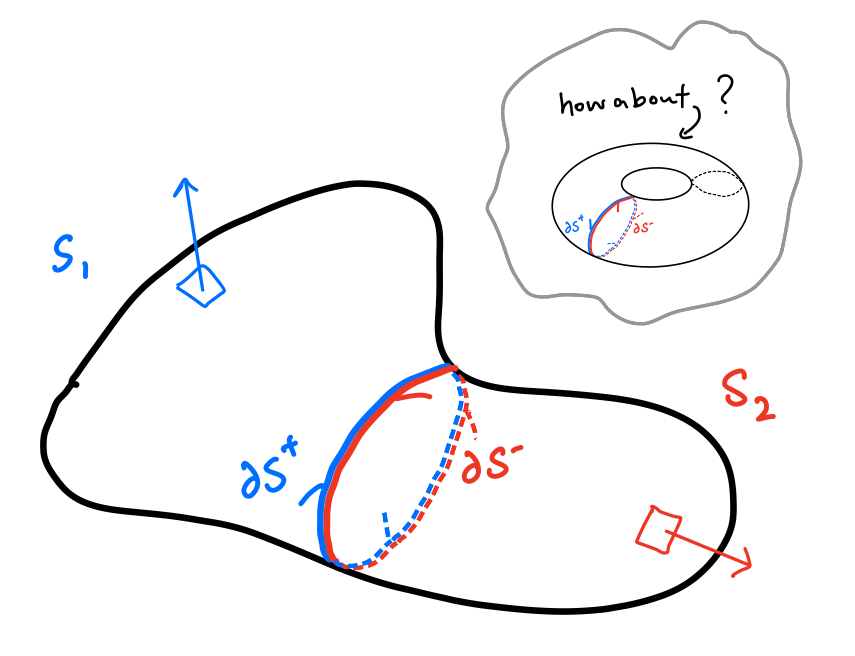 how about ?
∂S⁺
∂S⁻
S₁
S₂
∂S⁺
∂S⁻